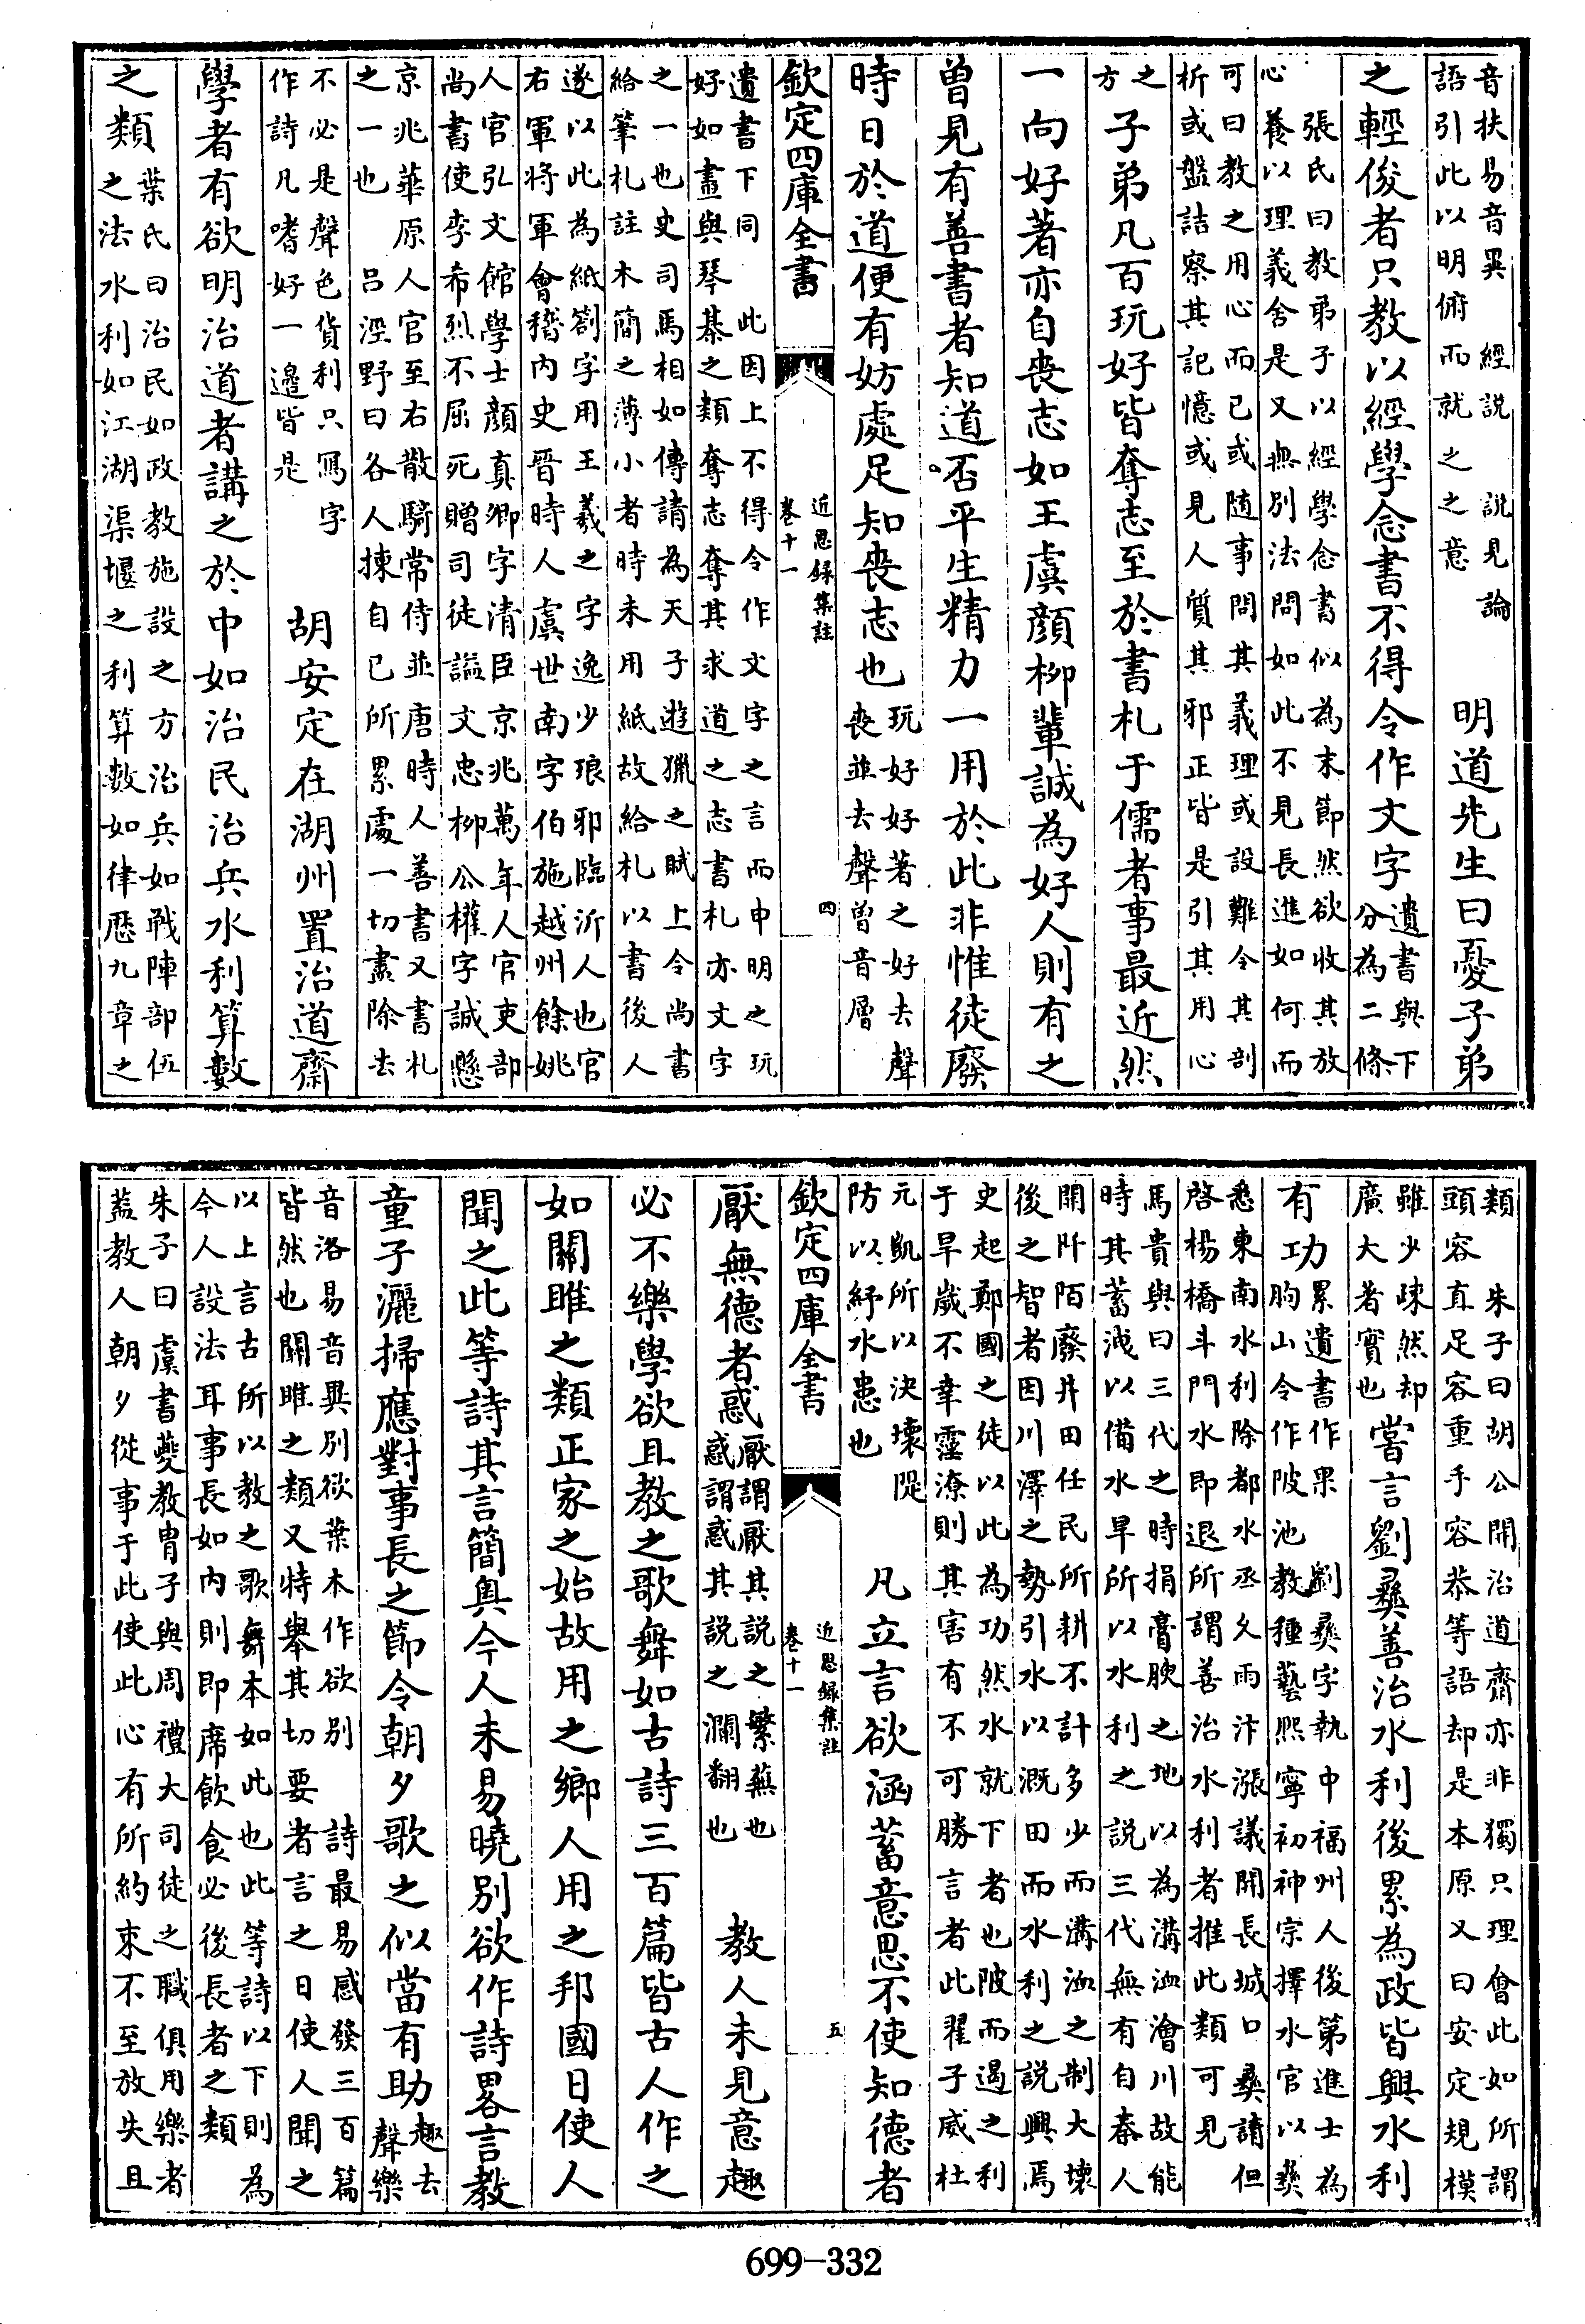 音扶易音異　經説　説見論
語引此以明俯而就之之意
明道先生曰憂子弟
之輕俊者只教以經學念書不得令作文字
遺書與下
分為二條
張氏曰教弟子以經學念書似為末節然欲收其放
心養以理義舍是又無別法問如此不見長進如何而
可曰教之用心而已或随事問其義理或設難令其剖
析或盤詰察其記憶或見人質其邪正皆是引其用心
之
方
子弟凡百玩好皆奪志至於書札于儒者事最近然
一向好著亦自喪志如王虞顔柳輩誠為好人則有之
曾見有善書者知道否平生精力一用於此非惟徒廢
時日於道便有妨處足知喪志也
玩好好著之好去聲
喪並去聲曾音層
欽定四庫全書
近思録集註
卷十一
四
遺書下同　此因上不得令作文字之言而申明之玩
好如畫與琴棊之類奪志奪其求道之志書札亦文字
之一也史司馬相如傳請為天子遊獵之賦上令尚書
給筆札註木簡之薄小者時未用紙故給札以書後人
遂以此為紙劄字用王羲之字逸少琅邪臨沂人也官
右軍將軍會稽内史晉時人虞世南字伯施越州餘姚
人官弘文館學士顔真卿字清臣京兆萬年人官吏部
尚書使李希烈不屈死贈司徒諡文忠柳公權字誠懸
京兆華原人官至右散騎常侍並唐時人善書又書札
之一也　吕涇野曰各人揀自已所累處一切盡除去
不必是聲色貨利只寫字
作詩凡嗜好一邊皆是
胡安定在湖州置治道齋
學者有欲明治道者講之於中如治民治兵水利算數
之類
葉氏曰治民如政教施設之方治兵如戰陣部伍
之法水利如江湖渠堰之利算數如律厯九章之
類　朱子曰胡公開治道齋亦非獨只理會此如所謂
頭容直足容重手容恭等語却是本原又曰安定規模
雖少疎然却
廣大者實也
嘗言劉彝善治水利後累為政皆興水利
有功
累遺書作果　劉彝字執中福州人後第進士為
朐山令作陂池教種藝熙寧初神宗擇水官以彝
悉東南水利除都水丞久雨汴漲議開長城口彝請但
啓楊橋斗門水即退所謂善治水利者推此類可見
馬貴與曰三代之時捐膏腴之地以為溝洫澮川故能
時其蓄洩以備水旱所以水利之説三代無有自秦人
開阡陌廢井田任民所耕不計多少而溝洫之制大壊
後之智者因川澤之勢引水以溉田而水利之説興焉
史起鄭國之徒以此為功然水就下者也陂而遏之利
于旱歲不幸霪潦則其害有不可勝言者此翟子威杜
元凱所以決壊隄
防以紓水患也
凡立言欲涵蓄意思不使知德者
欽定四庫全書
近思録集註
卷十一
五
厭無德者惑
厭謂厭其説之繁蕪也
惑謂惑其説之瀾翻也
教人未見意趣
必不樂學欲且教之歌舞如古詩三百篇皆古人作之
如關雎之類正家之始故用之鄉人用之邦國日使人
聞之此等詩其言簡奥今人未易曉别欲作詩畧言教
童子灑掃應對事長之節令朝夕歌之似當有助
趣去
聲樂
音洛易音異別欲葉本作欲别　詩最易感發三百篇
皆然也關雎之類又特舉其切要者言之日使人聞之
以上言古所以教之歌舞本如此也此等詩以下則為
今人設法耳事長如内則即席飲食必後長者之類
朱子曰虞書夔教胄子與周禮大司徒之職俱用樂者
蓋教人朝夕從事于此使此心有所約束不至放失且
699-332